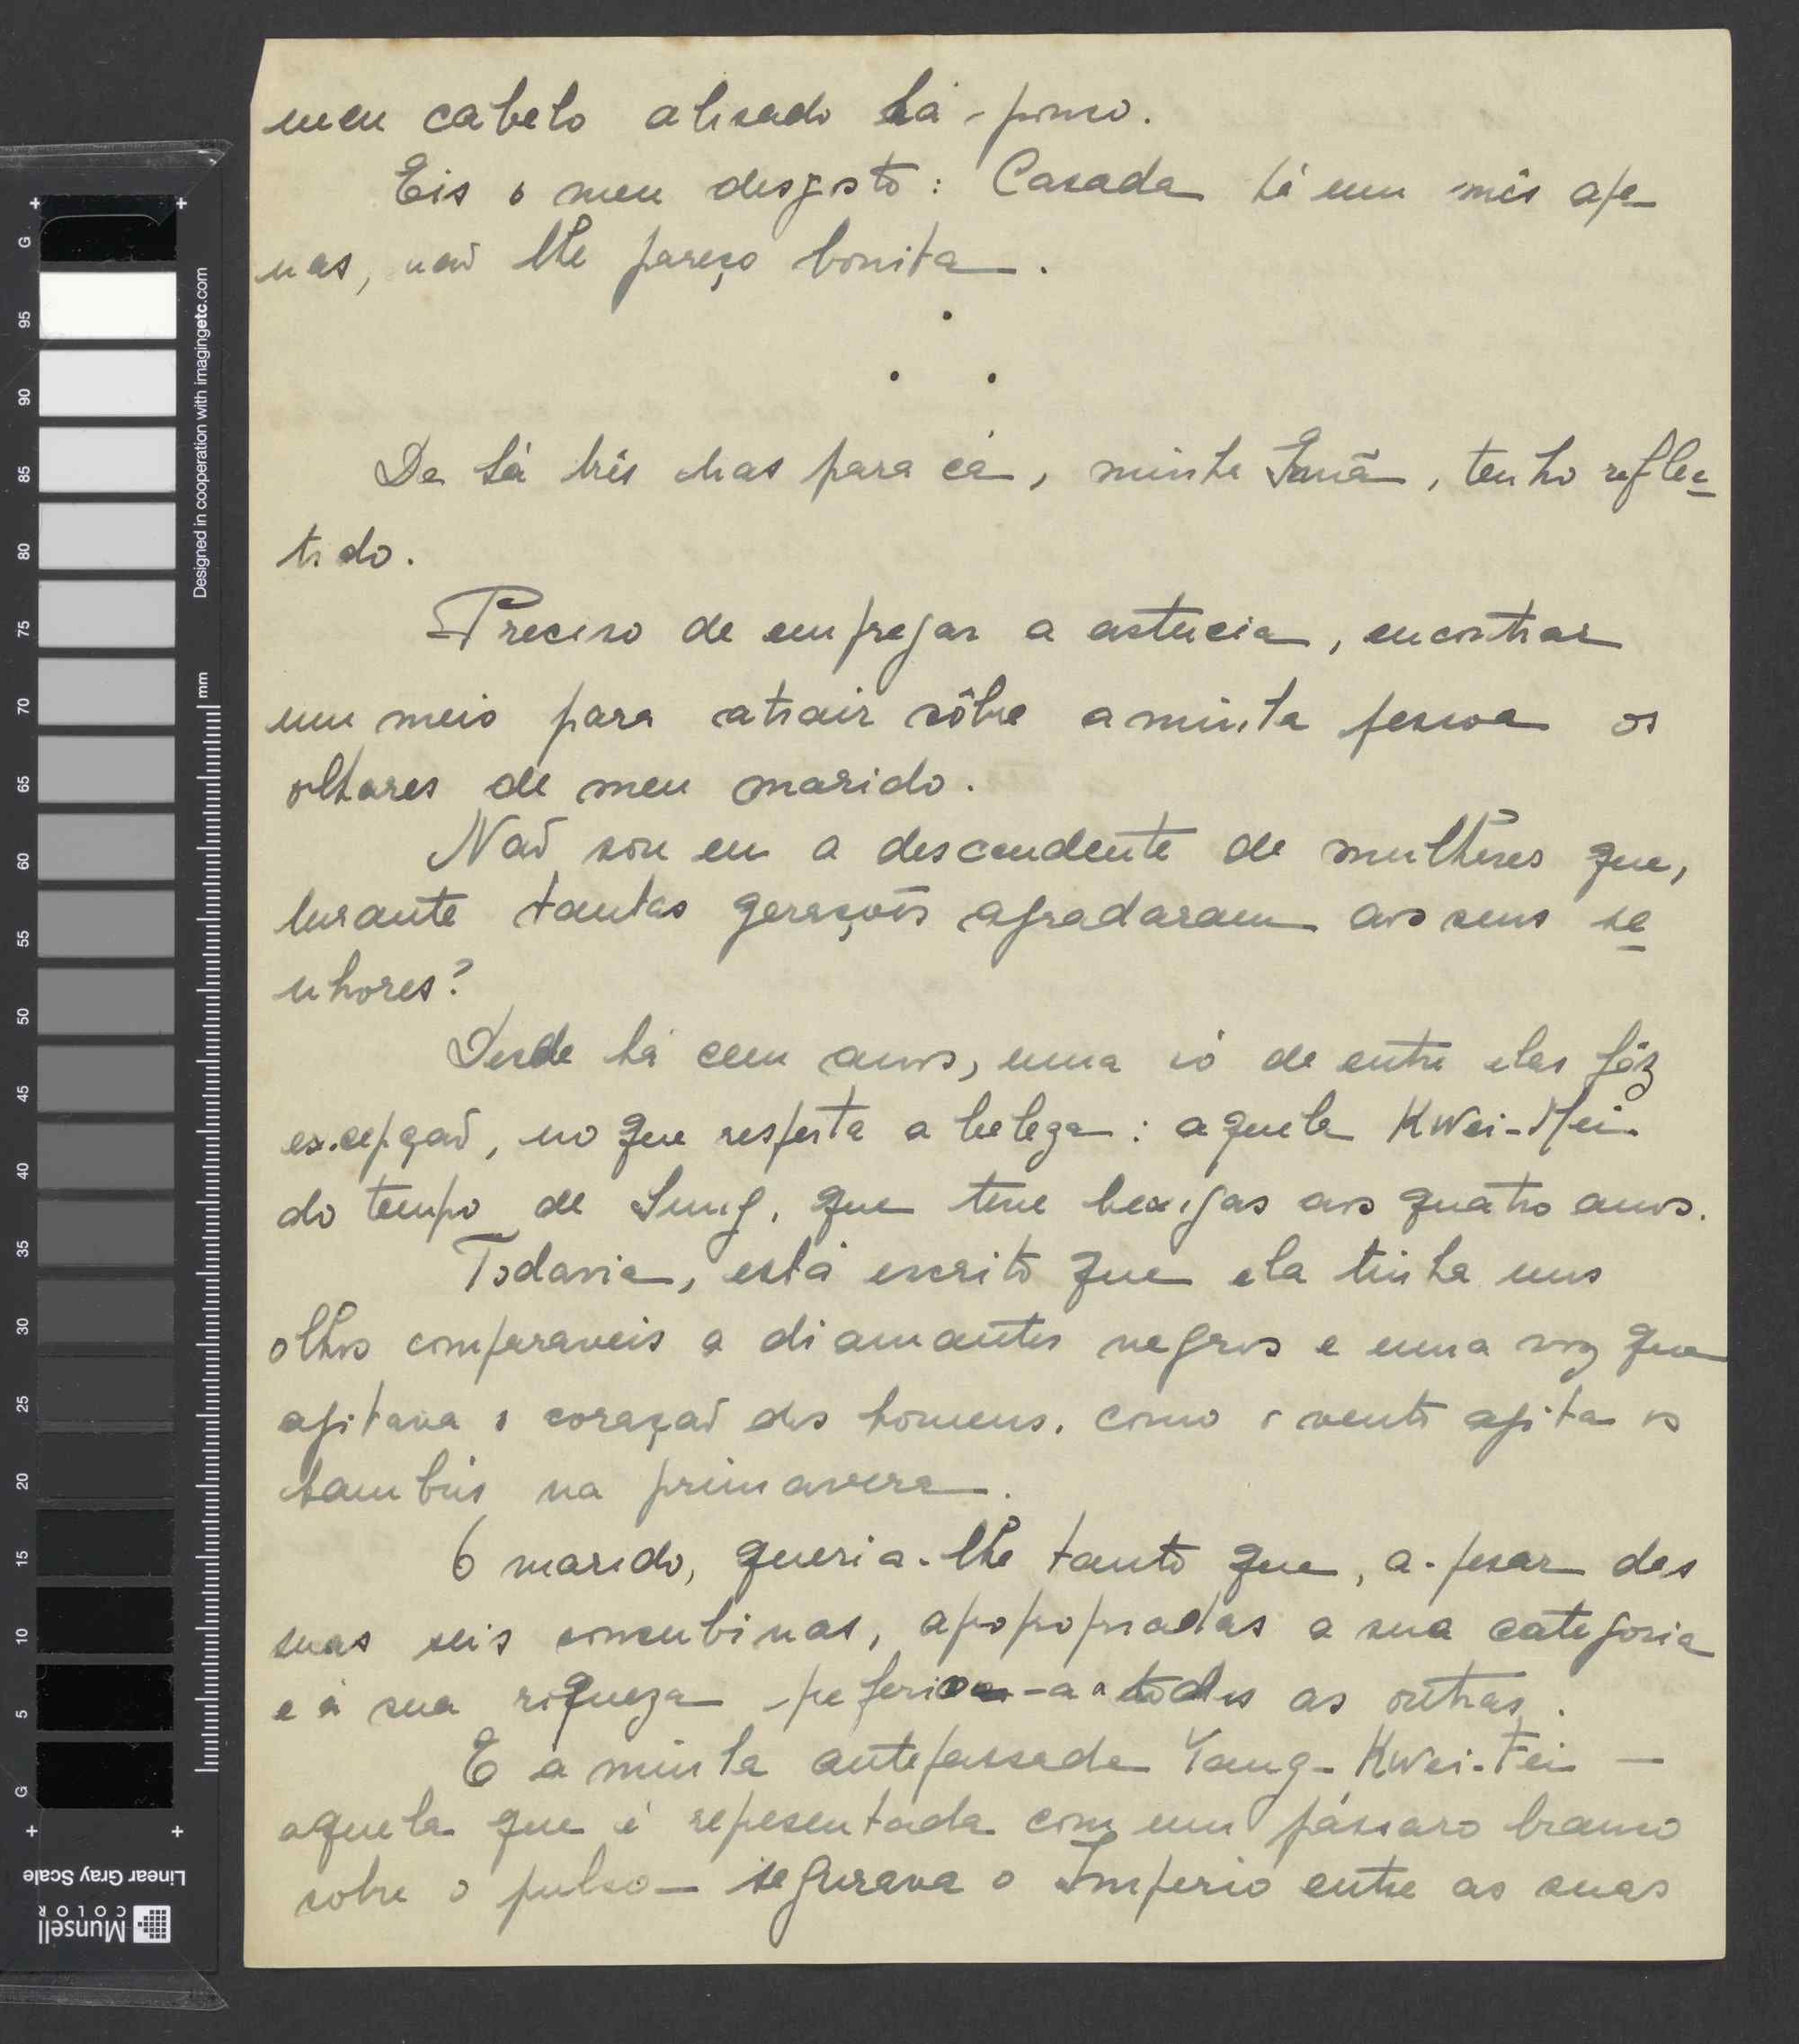 meu cabelo alisado há-pouco.
Eis o meu desgosto: Casada há um mês ape-
nas, não lhe pareço bonita.
De há três dias para cá, minha Irmã, tenho reflec-
tido.
Preciso de empregar a astucia, encontrar
um meio para atrair sôbre a minha pessoa os
olhares de meu marido.
Não sou eu a descendente de mulheres que,
durante tantas gerações agradaram aos seus se-
nhores?
Desde há cem anos, uma só de entre elas fêz
excepção, no que respeita a beleza: aquela Kwei-Mei
do tempo de Sung, que teve bexigas aos quatro anos.
Todavia, está escrito que ela tinha uns
olhos comparaveis a diamantes negros e uma voz que
agitava o coração dos homens, como o vento agita os
bambús na primavera.
O marido, queria-lhe tanto que, a-pesar das
suas seis concubinas, apopopriadas a sua categoria
e á sua riqueza -preferia-a a todas as outras.
E a minha antepassada Yang-Kwei-Fei —
aquela que é representada com um pássaro branco
sobre o pulso — segurava o Imperio entre as suas
Designed in cooperation with imagingetc.com
mm
G 95 90 85 80 75 70 65 60 55 50 45 40 35 30 25 20 15 10 5 G
Linear Gray Scale
Munsell
COLOR